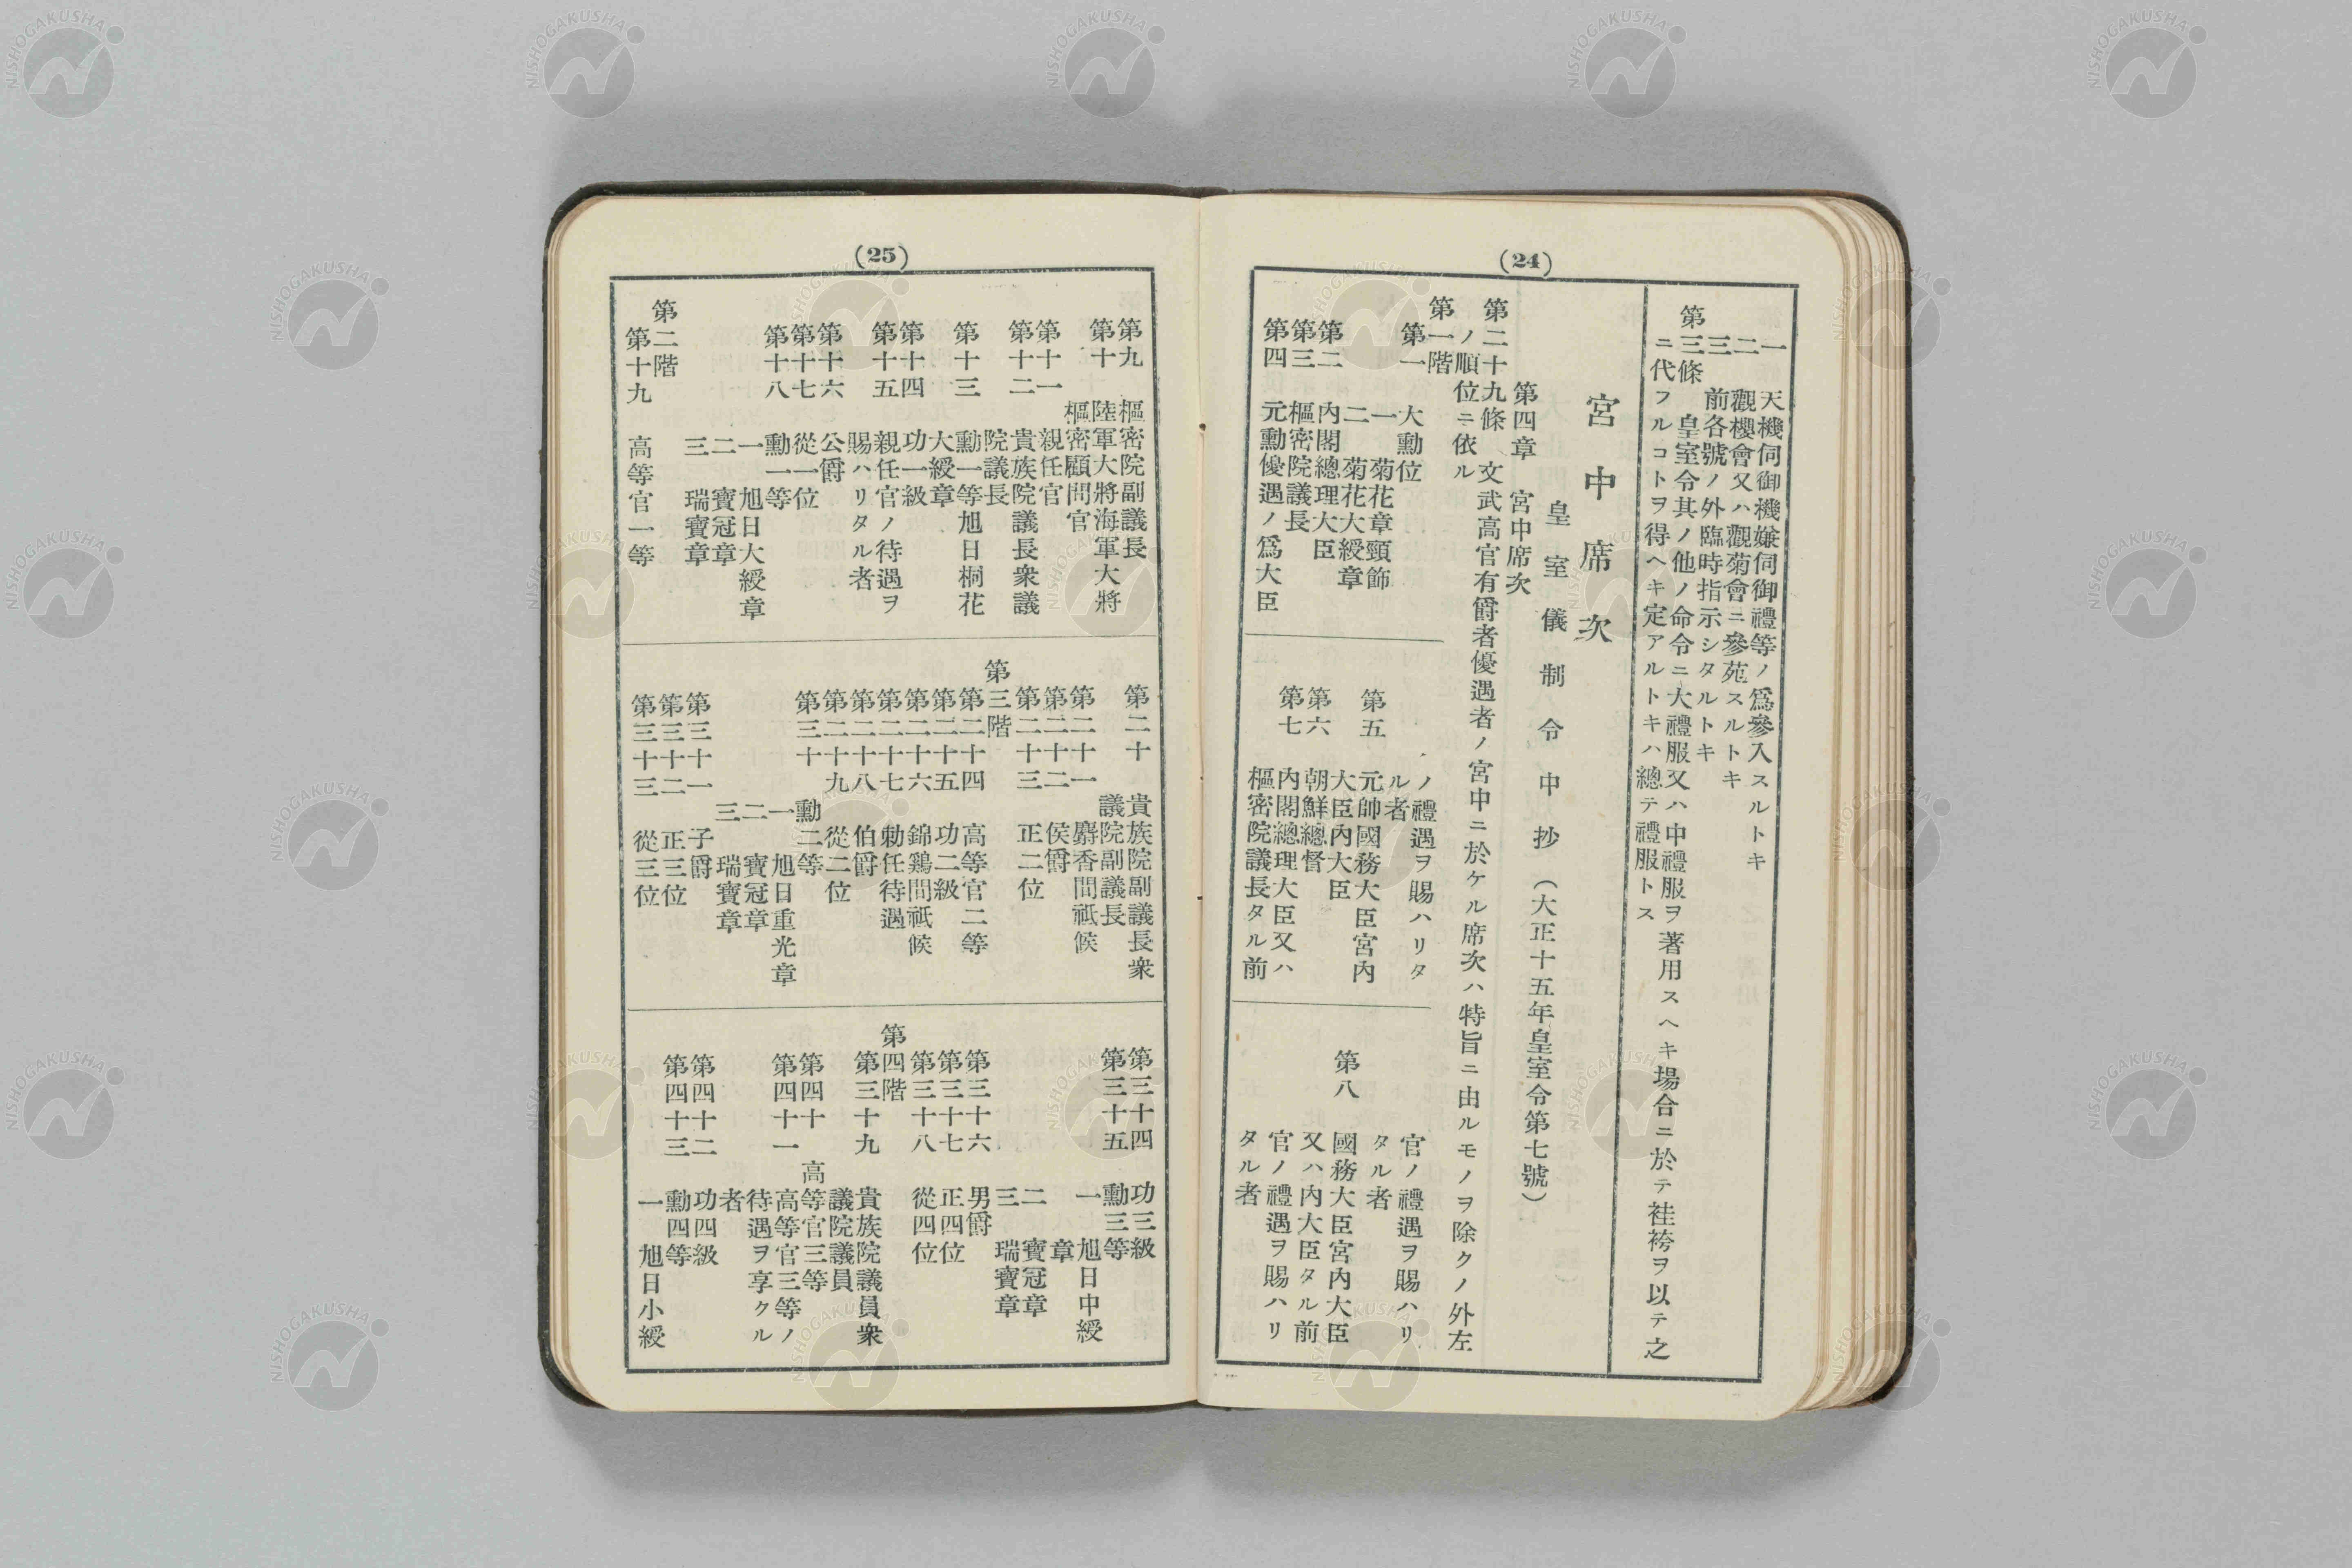 (24)
一　天機伺御機嫌伺御禮等ノ爲參入スルトキ
二　觀櫻會又ハ觀菊會ニ參苑スルトキ
三　前各號ノ外臨時指示シタルトキ
第三條　皇室令其ノ他ノ命令ニ大禮服又ハ中禮服ヲ著用スヘキ場合ニ於テ袿袴ヲ以テ之
ニ代フルコトヲ得ヘキ定アルトキハ總テ禮服トス
宮中席次
皇室儀制令中抄（大正十五年皇室令第七號）
第四章　宮中席次
第二十九條　文武高官有爵者優遇者ノ宮中ニ於ケル席次ハ特旨ニ由ルモノヲ除クノ外左
ノ順位ニ依ル
第一階
第一　大勳位
一　菊花章頸飾
二　菊花大綬章
第二　內閣總理大臣
第三　樞密院議長
第四　元勳優遇ノ爲大臣
ノ禮遇ヲ賜ハリタ
ル者
第五　元帥國務大臣宮內
大臣內大臣
第六　朝鮮總督
第七　內閣總理大臣又ハ
樞密院議長タル前
官ノ禮遇ヲ賜ハリ
タル者
第八　國務大臣宮內大臣
又ハ內大臣タル前
官ノ禮遇ヲ賜ハリ
タル者
(25)
第九　樞密院副議長
第十　陸軍大將海軍大將
樞密顧問官
第十一　親任官
第十二　貴族院議長衆議
院議長
第十三　勳一等旭日桐花
大綬章
第十四　功一級
第十五　親任官ノ待遇ヲ
賜ハリタル者
第十六　公爵
第十七　從一位
第十八　勳一等
一　旭日大綬章
二　寶冠章
三　瑞寶章
第二階
第十九　高等官一等
第二十　貴族院副議長衆
議院副議長
第二十一　麝香間祗候
第二十二　侯爵
第二十三　正二位
第三階
第二十四　高等官二等
第二十五　功二級
第二十六　錦鷄間祗候
第二十七　勅任待遇
第二十八　伯爵
第二十九　從二位
第三十　勳二等
一　旭日重光章
二　寶冠章
三　瑞寶章
第三十一　子爵
第三十二　正三位
第三十三　從三位
第三十四　功三級
第三十五　勳三等
一　旭日中綬
章
二　寶冠章
三　瑞寶章
第三十六　男爵
第三十七　正四位
第三十八　從四位
第四階
第三十九　貴族院議員衆
議院議員
第四十　高等官三等
第四十一　高等官三等ノ
待遇ヲ享クル
者
第四十二　功四級
第四十三　勳四等
一　旭日小綬
NISHOGAKUSHA